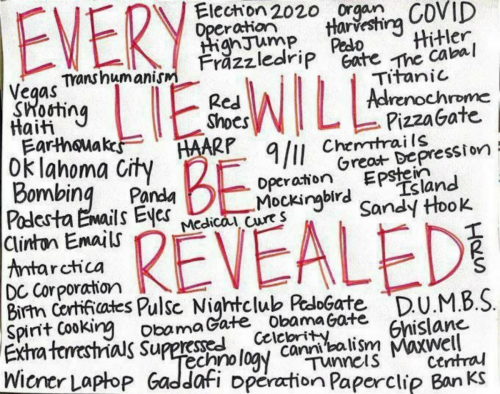 EVERY
Election 2020
Operation
HighJump
Frazzledrip
Organ
Harvesting
Pedo
Gate
COVID
Hitler
The Cabal
Titanic
Transhumanism
Vegas
Shooting
Haiti
Earthquakes
LIE WILL
Red
Shoes
HAARP
9/11
Adrenochrome
PizzaGate
Chemtrails
Great Depression
Oklahoma City
Bombing
Panda
Eyes
BE
Operation
Mockingbird
Epstein
Island
Sandy Hook
Podesta Emails
Clinton Emails
Medical Cures
REVEALED
IRS
Antarctica
DC Corporation
Birth Certificates
Pulse Nightclub
PedoGate
D.U.M.B.S.
Spirit Cooking
ObamaGate
ObamaGate
Ghislane
Maxwell
Extraterrestrials
Suppressed
Technology
Celebrity
Cannibalism
Tunnels
Central
Banks
Wiener Laptop
Gaddafi
Operation Paperclip